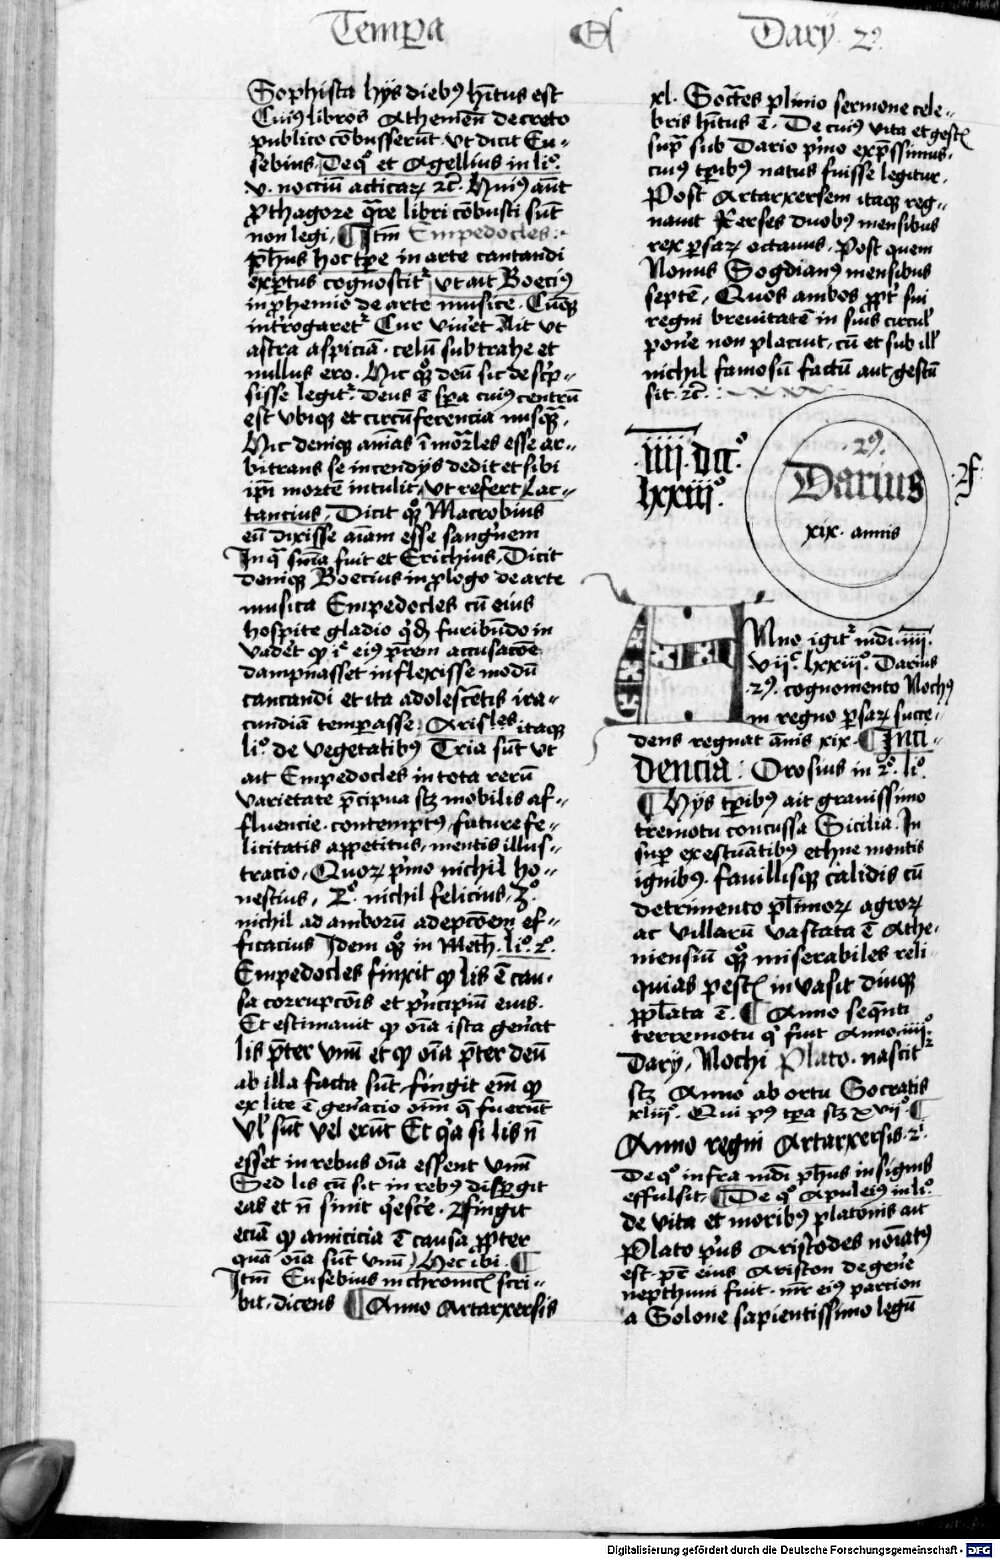 Tempa Dary 2ꝰ
Sophista hijs diebꝰ hītus est
Cuiꝰ libros Atheniēn decreto
publico cōbusserūt Vt dicit Eu-
sebius. De qͦ et Agellius in liͦ.
v. noctiū acticaꝝ ꝛc̄. Huiꝰ aūt
p̄thagore q̄re libri cōbusti sūt
non legi. ¶ Itm̄ Empedocles
ph̄us hoc tp̄e in arte cantandi
exp̄tus cognoscitᷣ vt ait Boeciꝰ
in prohemio de arte musice. Cūqꝫ
int̄rogaretᷣ Cur viuet Ait vt
astra aspiciā. celū subtrahe et
nullus ero. Hic qͦꝫ deū sic descͥp-
sisse legitᷣ. deus ē sp̄a cuiꝰ centrū
est vbiqꝫ et circūferencia nusqᷓꝫ.
Hic deniqꝫ aīas īmorͣles esse ar-
bitrans se incendijs dedit et sibi
ip̄i mortē intulit, vt refert Lac-
tancius. Dicit qͦꝫ Macrobius
eū dixisse aīam esse sangͥnem
In qͣ snīa fuit et Erichius. Dicit
deniqꝫ Boecius in p̄logo de arte
musica Empedocles cū eius
hospite gladio furibūdo in
vaderet p̄rem accusacōe
dampnasset inflexisse modū
cantandi et ita adolescētis ira-
cundiā temperasse. Aristͦles itaqꝫ
liͦ. de vegetatibꝰ Tria sūt vt
ait Empedocles in tota rerū
varietate p̄cipua scꝫ mobilis af-
fluencie. contemptꝰ, future fe-
licitatis appetitus, mentis illus-
tracio, Quoꝝ pͥmo nichil ho-
nestius, 2ͦ. nichil felicius, 3ͦ.
nichil ad amborū adepcōem ef-
ficacius Idem qͦꝫ in Meth. liͦ. 2ͦ.
Empedocles finxit qꝫ lis ē cau-
sa corrupcōis et pͥncipiū eius.
Et estimauit qꝫ oīa ista gen̄at
lis p̄ter vnū et qꝫ oīa p̄ter deū
ab illa facta sūt, fingit em̄ qꝫ
ex lite ē gen̄acio oīm q̄ fuerūt
vl̄ sūt vel erūt Et qͥa si lis n̄
esset in rebus oīa essent vnū
Sed lis cū sit in rebꝰ disp̄git
eas et n̄ sinit qͥescēre. 2 fingit
eciā qꝫ amicicia ē causa ꝓpter
quā oīa sūt vnū, Hec ibi. ¶
Itm̄ Eusebius in chronicꝭ scri-
bit, dicens ¶ Anno Artarxersis
xl. Socͣtes plinio sermone cele-
bris hītus ē. De cuiꝰ vita et gestꝭ
supͣ sub Dario pͥmo exp̄ssimus.
cuiꝰ tp̄ibꝰ natus fuisse legitur.
Post Artarxersem itaqꝫ reg-
nauit Xerses duobꝰ mensibus
rex p̄saꝝ octauus. Post quem
Nonus Sogdianꝰ mensibus
septē, Quos ambos ꝓpt̄ sui
regni breuitatē in suis circul̄
pon̄e non placuit, cū et sub ill̄
nichil famosū factū aut gestū
sit. ꝛc̄.
iiii. dccͦ.
lxxiiiͦ.
2ꝰ.
Darius
xix. annis
Anno igitᷣ mūdi. iiii.
viiͨ. lxxiiiͦ. Darius
.2ꝰ. cognomento Nochꝰ
in regno p̄saꝝ succe-
dens regnat ānis xix. ¶ Inci-
dencia: Orosius in 2ͦ. liͦ.
¶ Hijs tp̄ibꝰ ait grauissimo
tremotu concussa Sicilia. In
sup̄ exestuātibꝰ ethne montis
ignibus. fauillisqꝫ calidis cū
detrimento pl̄imoꝝ agroꝝ
ac villarū vastata ē Athe-
niensiū qͦꝫ miserabiles reli-
quias pestꝭ inuasit diuqꝫ
ppl̄ata ē. ¶ Anno seqn̄ti
terremotu qͥ fuit Anno iiiiͦ.
Dary, Nochi Plato. nascitᷣ
scꝫ Anno ab ortu Socratis
xliiiͦ. Qui pꝰ tp̄a scꝫ xviiͦ. ¶
Anno regni Artarxersis. 2ͥ.
De qͦ infra mūdi ph̄us insignis
effulsit. ¶ De qͦ Apuleiꝰ in liͦ.
de vita et moribꝰ platonis ait
Plato pͥus Aristodes noīatꝰ
est. pr̄ eius Ariston de gen̄e
nepthuni fuit. mr̄ eiꝰ partion
a Solone sapientissimo legū
Digitalisierung gefördert durch die Deutsche Forschungsgemeinschaft - DFG